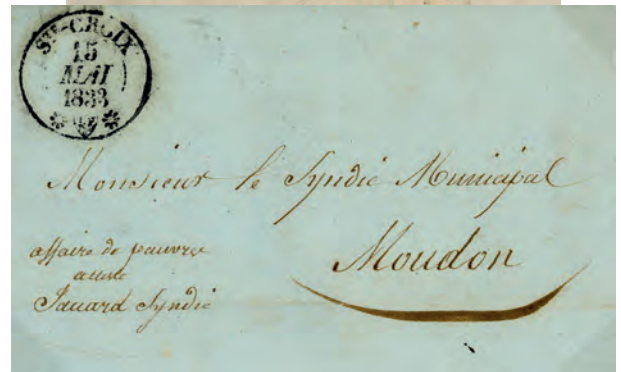 STE-CROIX
15
MAI
1833
Monsieur le Syndic Municipal
Moudon
affaire de pauvres
atteste
Jaccard Syndic